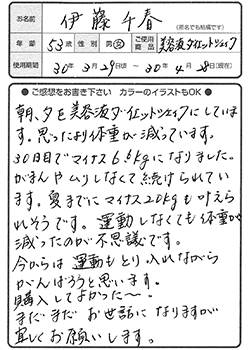 お名前 伊藤千春 (匿名でも結構です)
年齢 53歳 性別 男・女 ご使用商品 美容液ダイエットシェイク
使用期間 30年3月29日頃～30年4月28日(現在)
●ご感想をお書き下さい カラーのイラストもOK●
朝、夕を美容液ダイエットシェイクにしていま
す。思ったより体重が減っています。
30日目でマイナス6.6kgになりました。
がまんやムリしなくて続けられてい
ます。夏までにマイナス20kgも叶えら
れそうです。運動しなくても体重が
減ったのが不思議です。
今からは運動もとり入れながら
がんばろうと思います。
購入してよかった～。
まだまだお世話になりますが
宜しくお願いします。